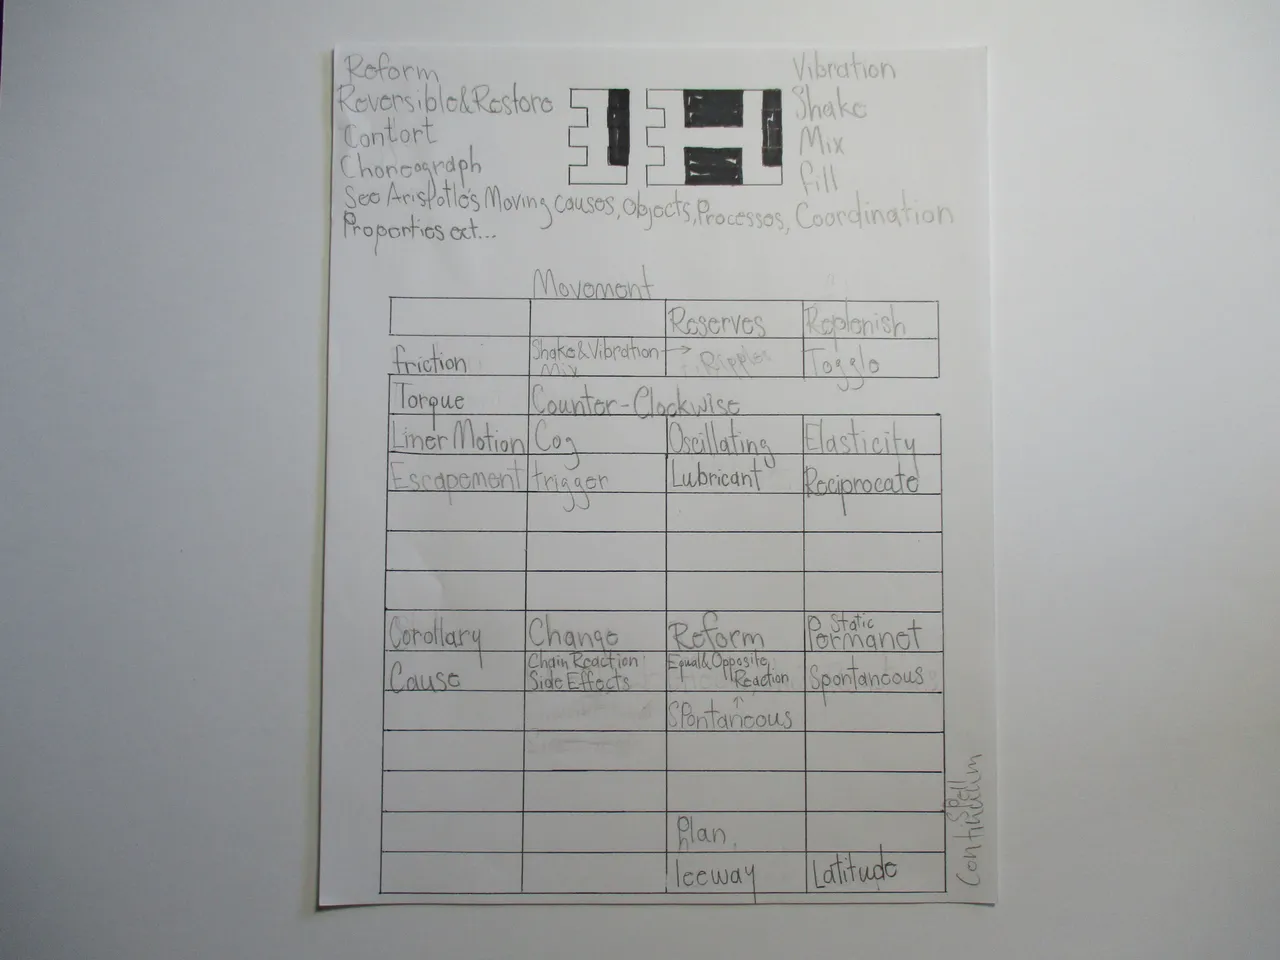 Reform
Reversible&Restore
Contort
Choreograph
See Aristotle's Moving causes, Objects, Processes, Coordination
Properties ext...
Vibration
Shake
Mix
fill
Movement
Reserves Replenish
friction Shake&Vibration → Ripples Toggle
Mix
Torque Counter-Clockwise
Liner Motion Cog Oscillating Elasticity
Escapement trigger Lubricant Reciprocate
Static
Corollary Change Reform Permanet
Chain Reaction Equal&Opposite
Cause Side Effects Reaction Spontaneous
↑
Spontaneous
Plan
leeway Latitude